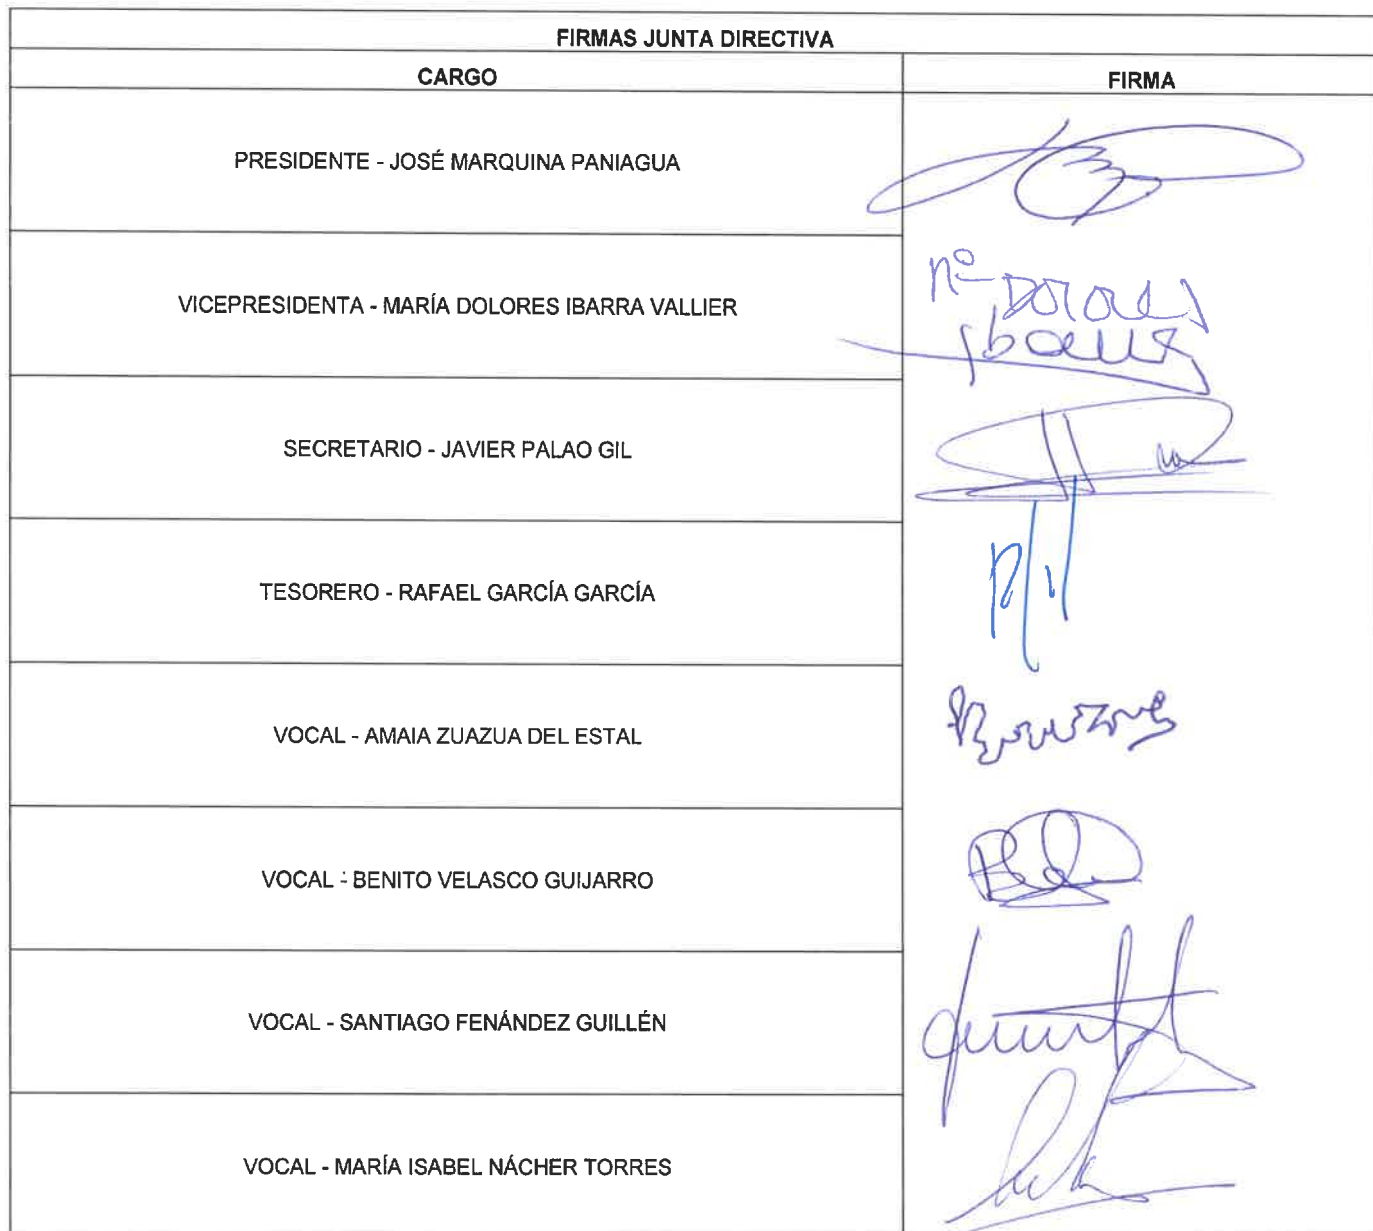 FIRMAS JUNTA DIRECTIVA
CARGO
FIRMA
PRESIDENTE - JOSÉ MARQUINA PANIAGUA
VICEPRESIDENTA - MARÍA DOLORES IBARRA VALLIER
Mª DOLORES
Ibarra
SECRETARIO - JAVIER PALAO GIL
TESORERO - RAFAEL GARCÍA GARCÍA
VOCAL - AMAIA ZUAZUA DEL ESTAL
VOCAL - BENITO VELASCO GUIJARRO
VOCAL - SANTIAGO FENÁNDEZ GUILLÉN
VOCAL - MARÍA ISABEL NÁCHER TORRES